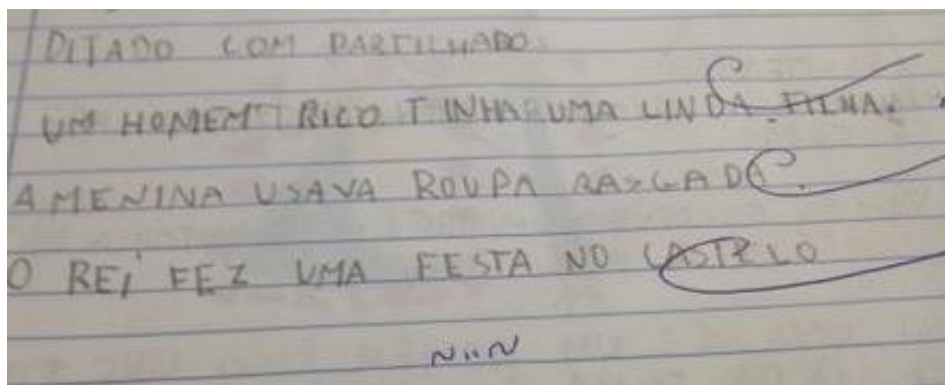 DITADO COM PARTILHADO.
UM HOMEM RICO TINHA UMA LINDA FILHA.
A MENINA USAVA ROUPA RASGADA.
O REI FEZ UMA FESTA NO CASTELO